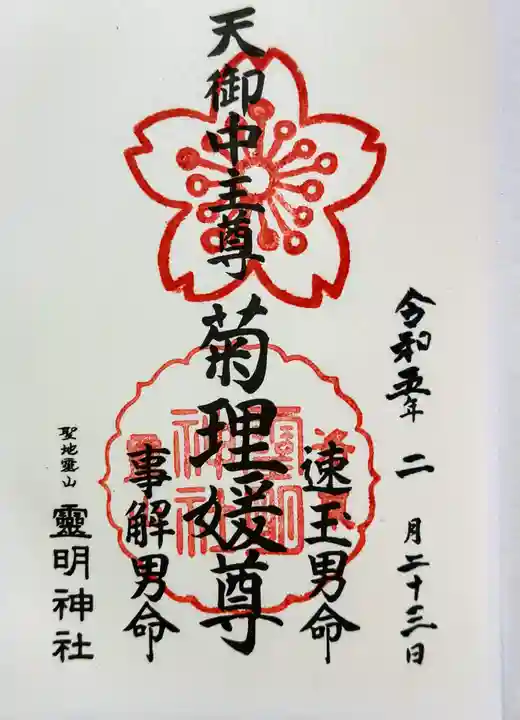 令和五年 二 月二十三日
速玉男命
天御中主尊
菊理媛尊
事解男命
聖地霊山
靈明神社